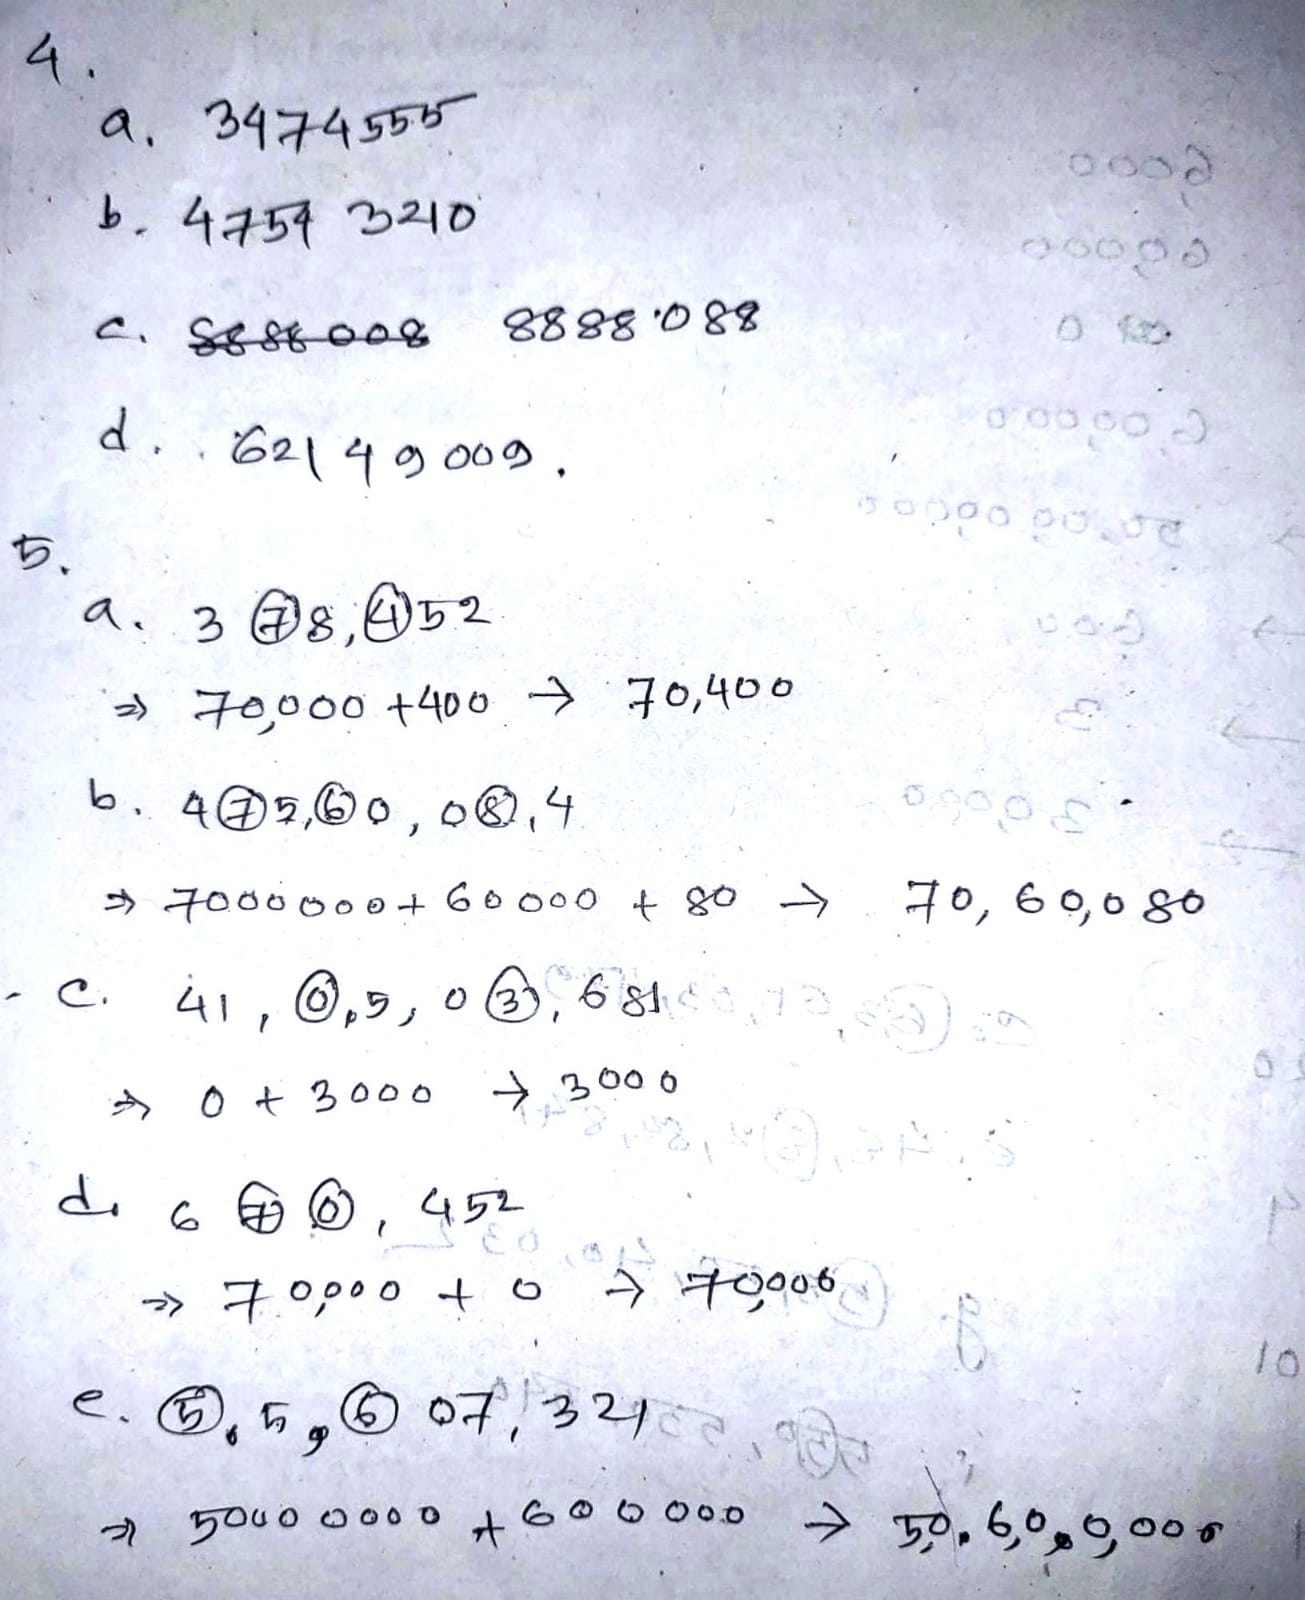 4.
a. 3474555
b. 4754 3210
c. 8888008 8888088
d. 62149009.
5.
a. 3 7 8, 4 5 2
⇒ 70,000 + 400 → 70,400
b. 4 7 5, 6 0, 0 8, 4
⇒ 7000000 + 60000 + 80 → 70, 60,080
c. 41, 0, 5, 0 3, 681
⇒ 0 + 3000 → 3000
d. 6 7 0, 452
⇒ 70,000 + 0 → 70,000
e. 5, 5, 6 07, 321
⇒ 50000000 + 600000 → 5,0, 6,0,0,000